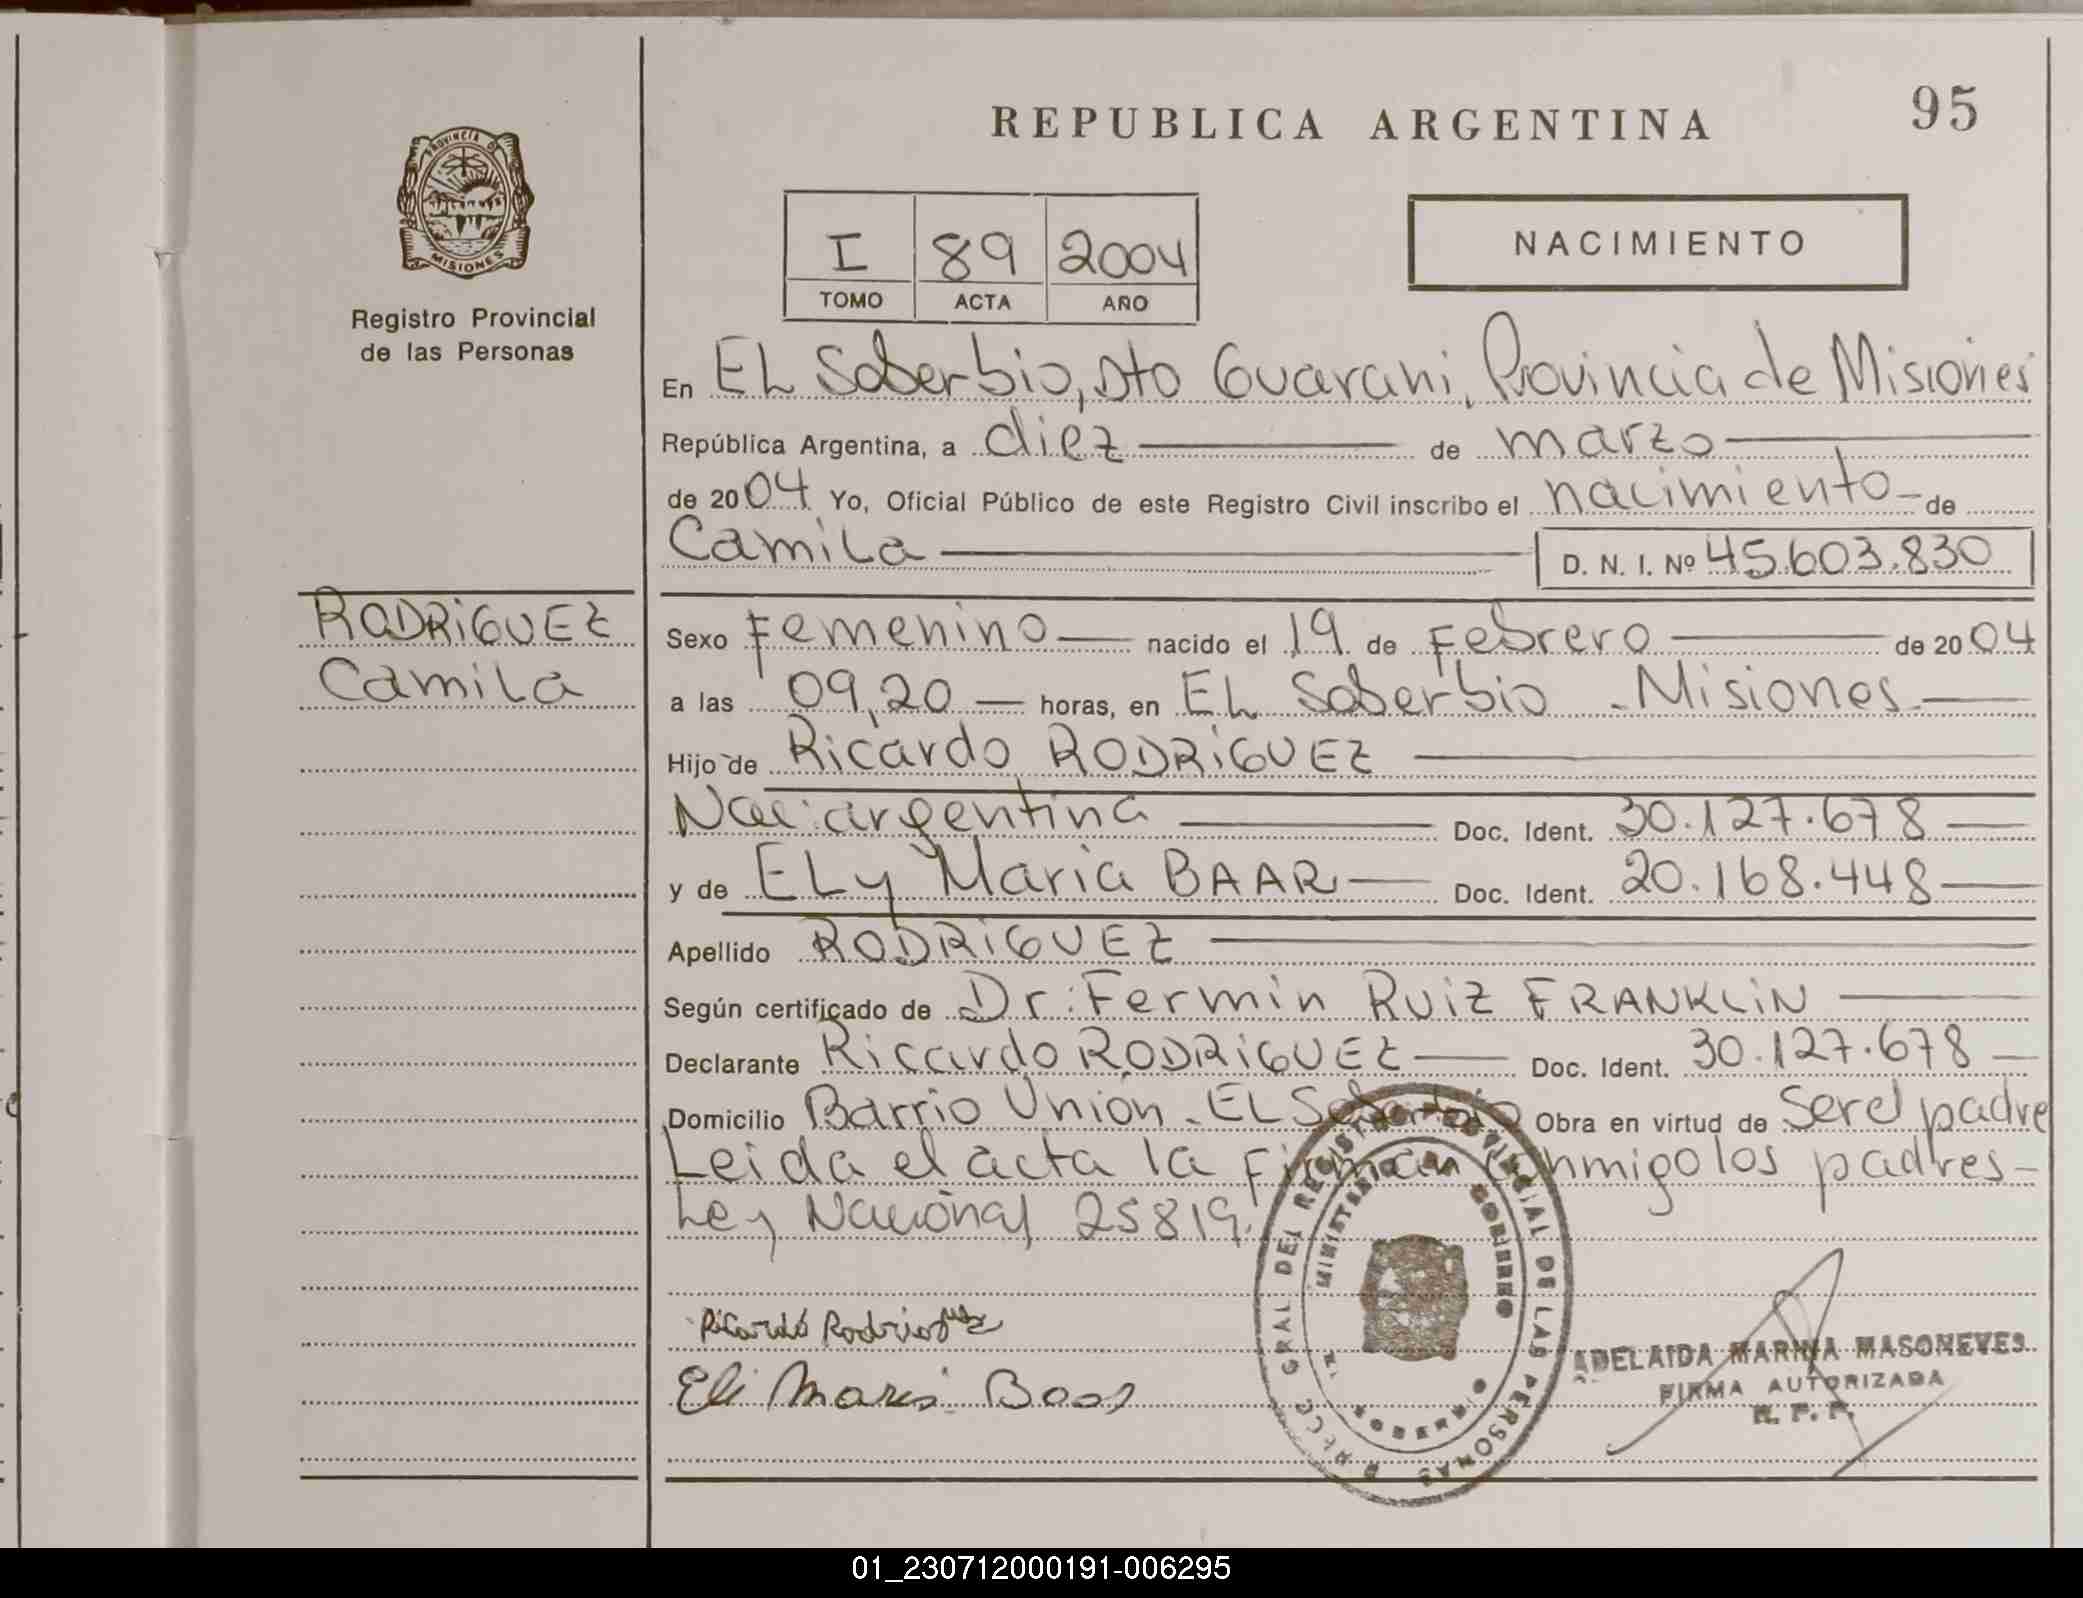 PROVINCIA DE
MISIONES
Registro Provincial
de las Personas
RODRIGUEZ
Camila
REPUBLICA ARGENTINA
95
I 89 2004
TOMO ACTA AÑO
NACIMIENTO
En EL Soberbio, Dto Guarani, Provincia de Misiones
República Argentina, a diez de marzo
de 2004 Yo, Oficial Público de este Registro Civil inscribo el nacimiento de
Camila D. N. I. Nº 45.603.830
Sexo Femenino nacido el 19 de Febrero de 2004
a las 09,20 horas, en EL Soberbio - Misiones
Hijo de Ricardo RODRIGUEZ
Nac: argentina Doc. Ident. 30.127.678
y de ELy Maria BAAR Doc. Ident. 20.168.448
Apellido RODRIGUEZ
Según certificado de Dr: Fermin RUIZ FRANKLIN
Declarante Ricardo RODRIGUEZ Doc. Ident. 30.127.678
Domicilio Barrio Unión - EL Soberbio Obra en virtud de Ser el padre
Leida el acta la Firman conmigo los padres
Ley Nacional 25819.
Ricardo Rodriguez
Eli Maria
DIRECC GRAL DEL REGISTRO PROVINCIAL DE LAS PERSONAS
MINISTERIO DE GOBIERNO
EL SOBERBIO
ADELAIDA MARINA MASONEVES
FIRMA AUTORIZADA
R. P. P.
01_230712000191-006295